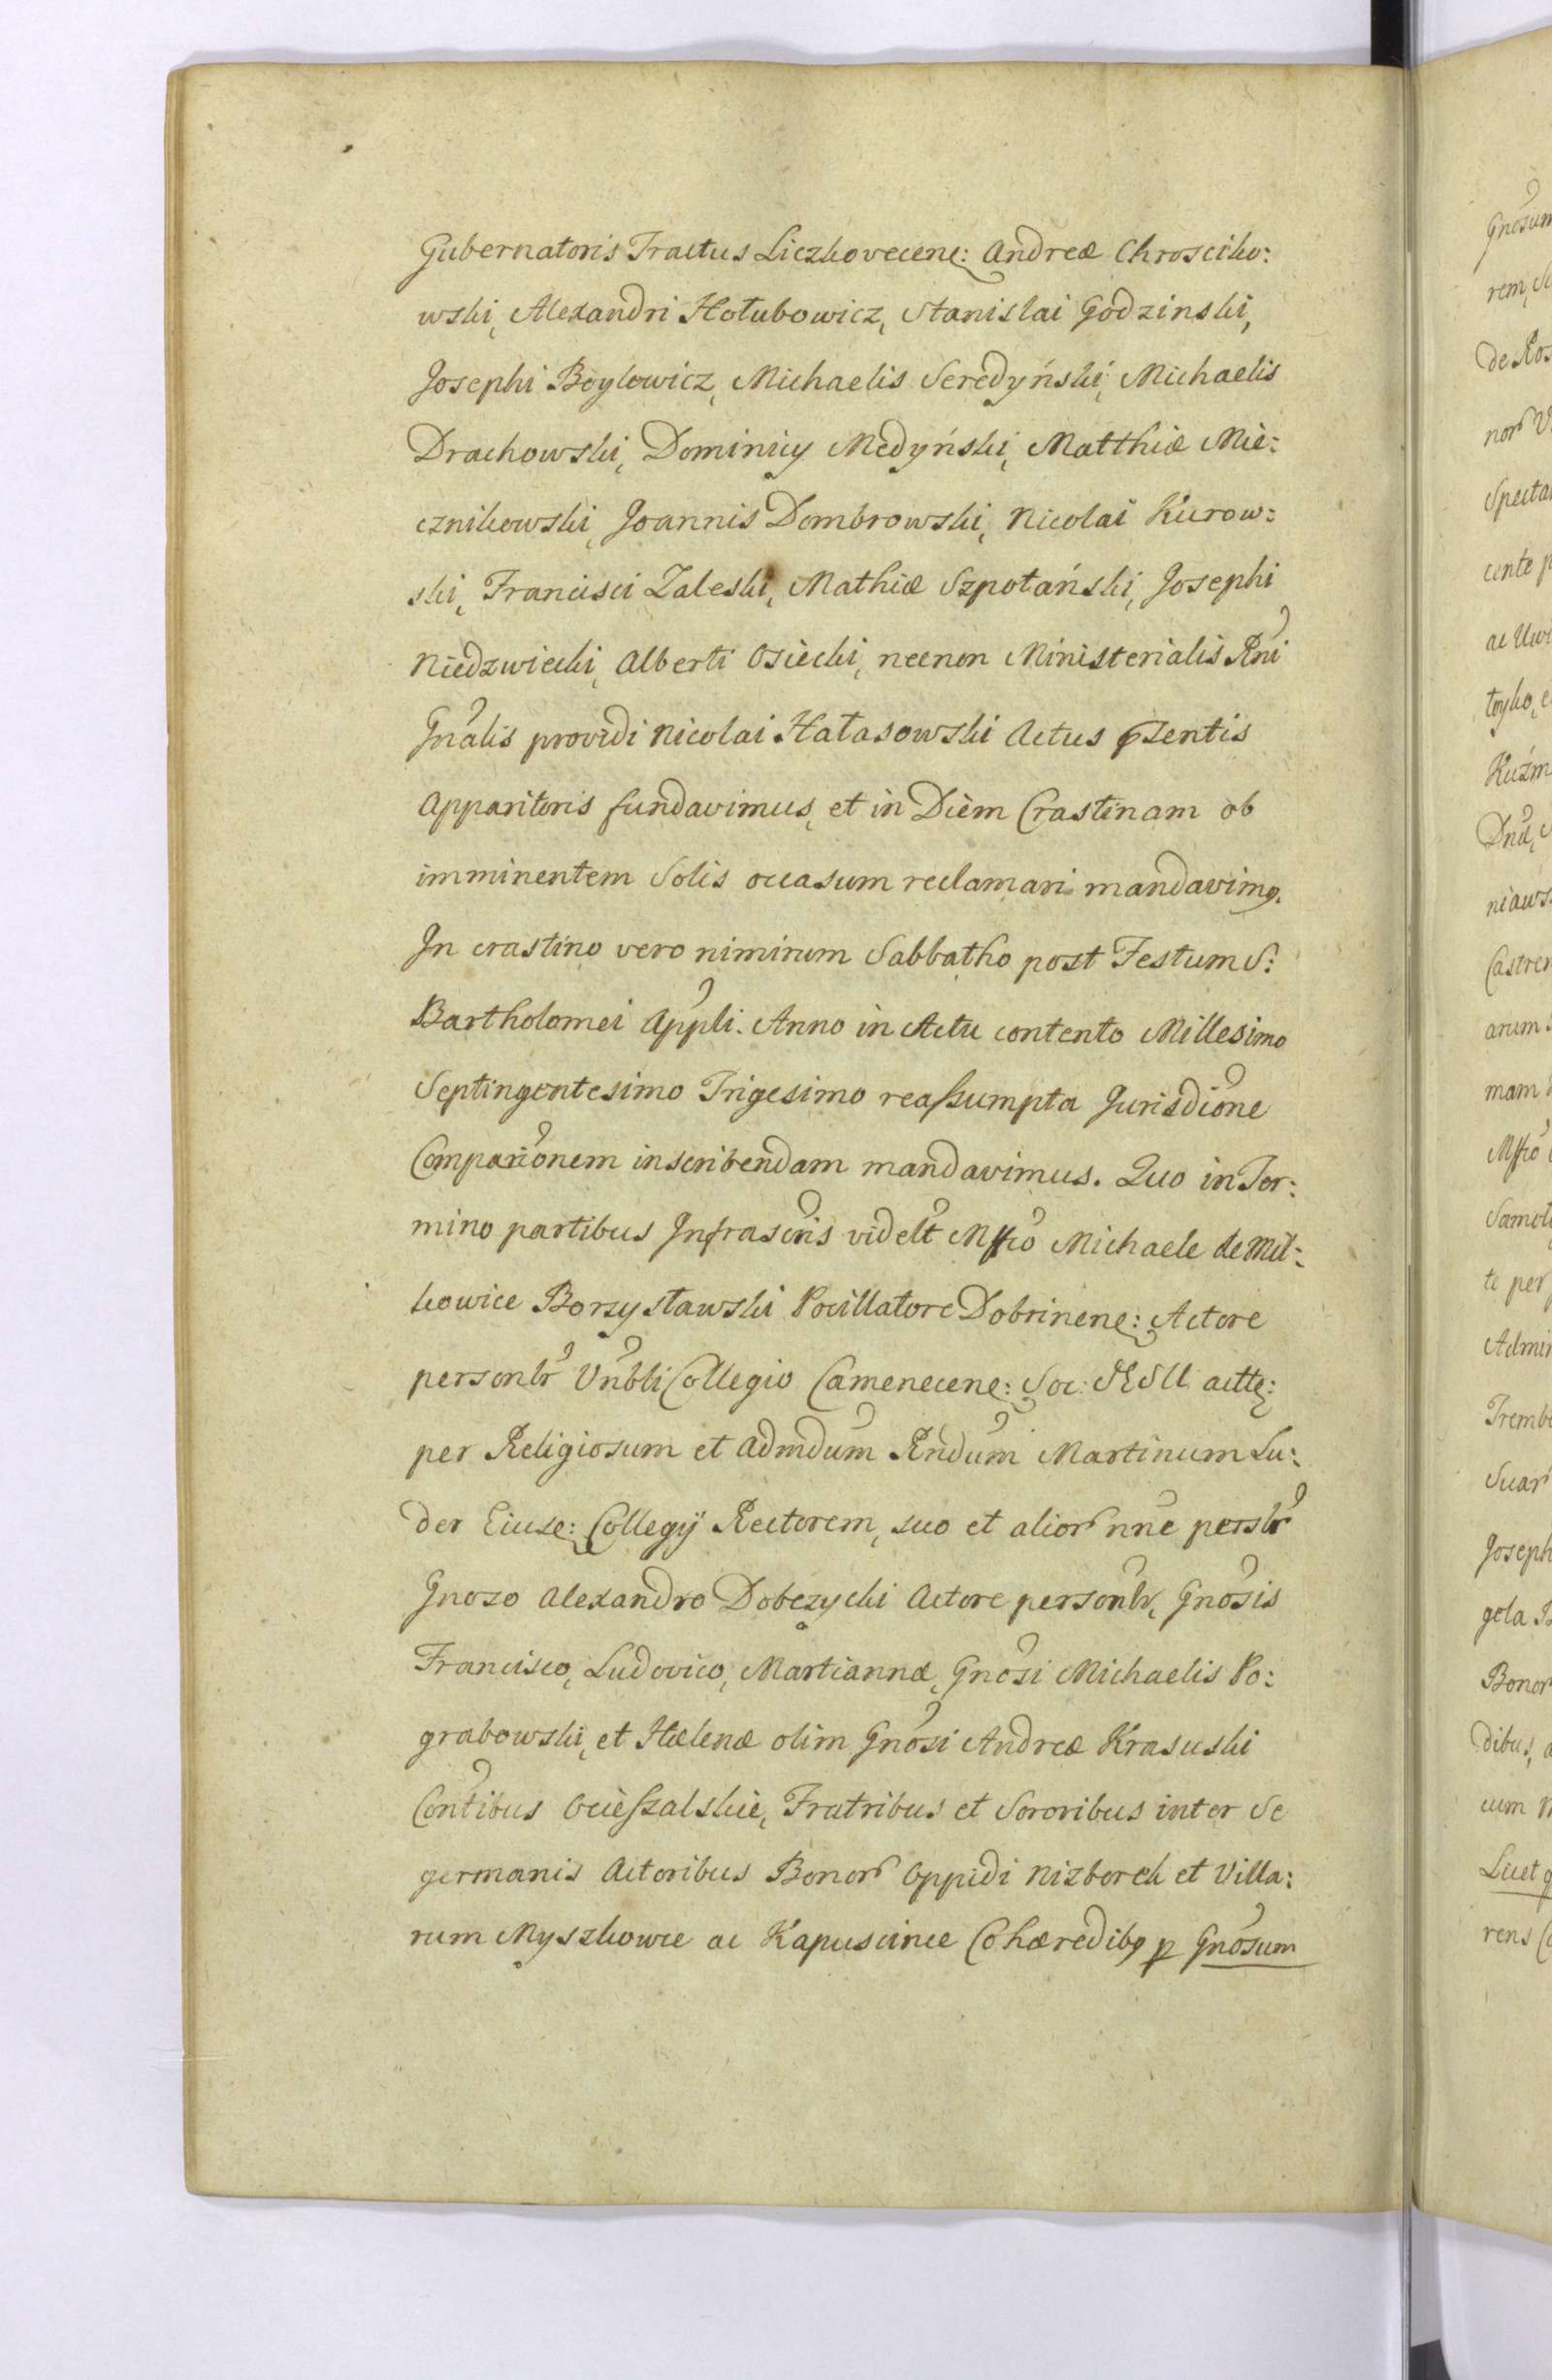 Gubernatoris Tractus Liczkovecen: Andreæ Chrościko:
wski, Alexandri Hołubowicz, Stanislai Godzinski,
Josephi Boylowicz, Michaelis Seredyński, Michaelis
Drachowski, Dominicy Medyński, Matthiæ Mie:
cznikowski, Joannis Dombrowski, Nicolai Kurow:
ski, Francisci Zaleski, Mathiæ Szpotański, Josephi
Niedzwiecki, Alberti Osiecki, necnon Ministerialis Rni
Gnalis providi Nicolai Hałasowski Actus pntis
Apparitoris fundavimus, et in Diem Crastinam ob
imminentem Solis occasum reclamari mandavimq.
In crastino vero nimirum Sabbatho post Festum S:
Bartholomei Appli. Anno in Actu contento Millesimo
Septingentesimo Trigesimo reassumpta Jurisdione
Comparionem inscribendam mandavimus. Quo in Ter:
mino partibus Infrascris videlt Mfco Michaele de Mil:
kowice Borzysławski Pocillatore Dobrinen: Actore
personlr Vnbli Collegio Camenecen: Soc: JESU actte:
per Religiosum et Admdum Rndum Martinum Lu:
der Eiusd: Collegij Rectorem, suo et alior nne perslr
Gnoso Alexandro Dobczycki Actore personlr, Gnosis
Francisco, Ludovico, Martianna, Gnosi Michaelis Po:
grabowski, et Hælenæ olim Gnosi Andreæ Krasuski
Contibus Ocieszalskie, Fratribus et Sororibus inter Se
germanis Actoribus Bonor Oppidi Nizborck et Villa:
rum Myszkowce ac Kapuscince Cohæredibq p Gnosum
Gnosum
rem,
de
nor
cente
ac
toyko,
Dnu,
niaws
Castren
arum
mam
Mfco
te per
Admin
Tremb
Suar
Joseph
gela
Bonor
dibus,
cum
Licet
rens